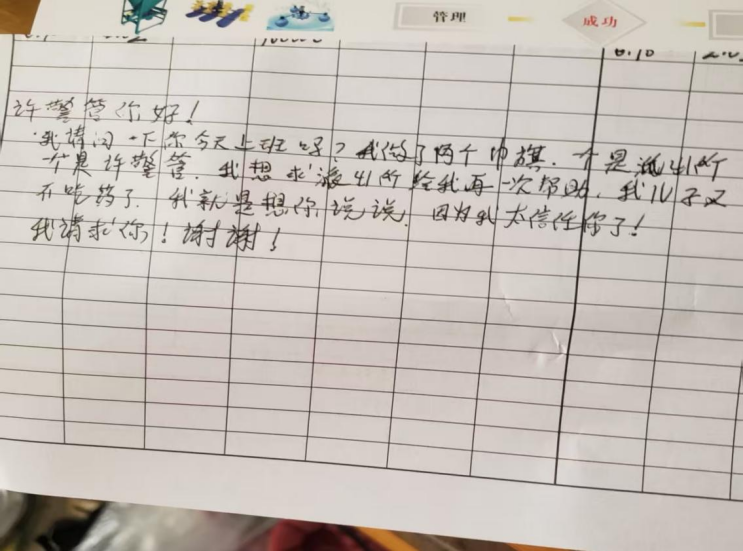 管理 成功
100000 0.10
许警管你好！
我请问一下你今天上班吗？我做了两个巾旗.一个是派出所
一个是许警管.我想求派出所给我再一次帮助.我儿子又
不吃药了.我就是想你说说.因为我太信任你了！
我请求你！谢谢！